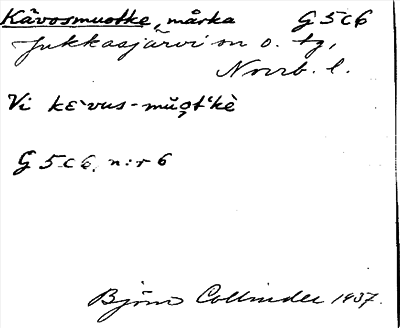 Kåvosmuotke, mårka G5c6
Jukkasjärvi sn o. tg,
Norrb. l.
Vi kɛ̄vus-mŭo̯t‛kè
G5c6, n:r 6
Björn Collinder 1937.